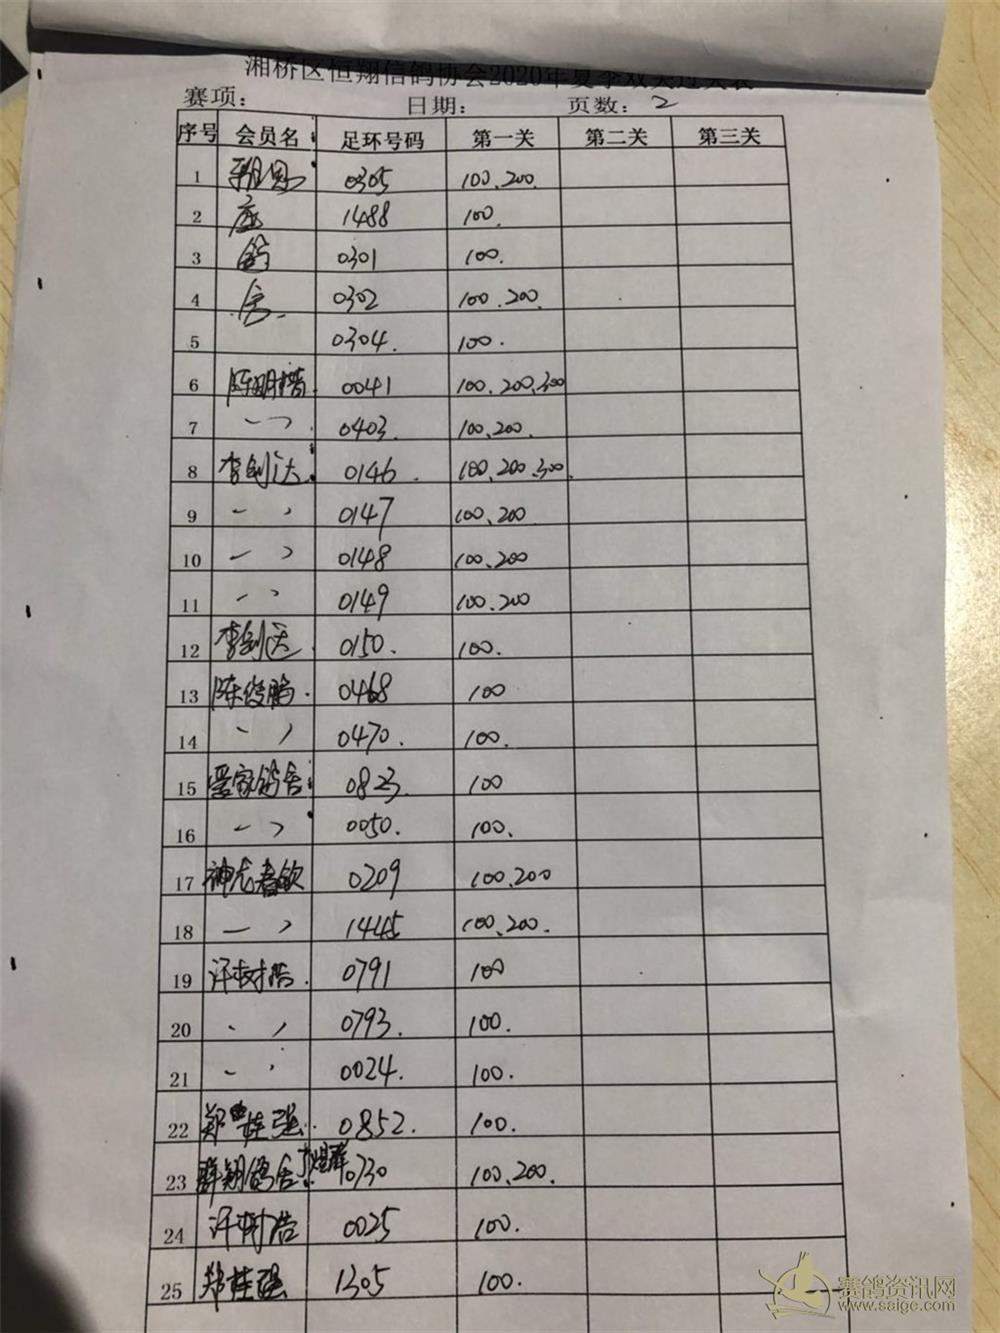 湘桥区恒翔信鸽协会2020年夏季双关
赛项： 日期： 页数：2
序号 会员名 足环号码 第一关 第二关 第三关
1 0305 100.200.
2 1488 100.
3 鸽 0301 100.
4 舍. 0302 100.200.
5 0304. 100.
6 陈明楷. 0041 100.200.300
7 〃 0403. 100.200.
8 李剑达 0146. 100.200.300.
9 〃 0147 100.200
10 〃 0148 100.200
11 〃 0149 100.200
12 李剑达. 0150. 100.
13 陈俊鹏. 0468 100
14 〃 0470. 100.
15 家鸽舍 0823. 100
16 〃 0050. 100.
17 神龙春钦 0209 100.200
18 〃 1445 100.200.
19 许树浩. 0791 100
20 〃 0793. 100.
21 〃 0024. 100.
22 郑桂强. 0852. 100.
23 翔鸽舍 0730 100.200.
24 许树浩 0025 100.
25 郑桂强 1305 100.
赛鸽资讯网
www.saige.com